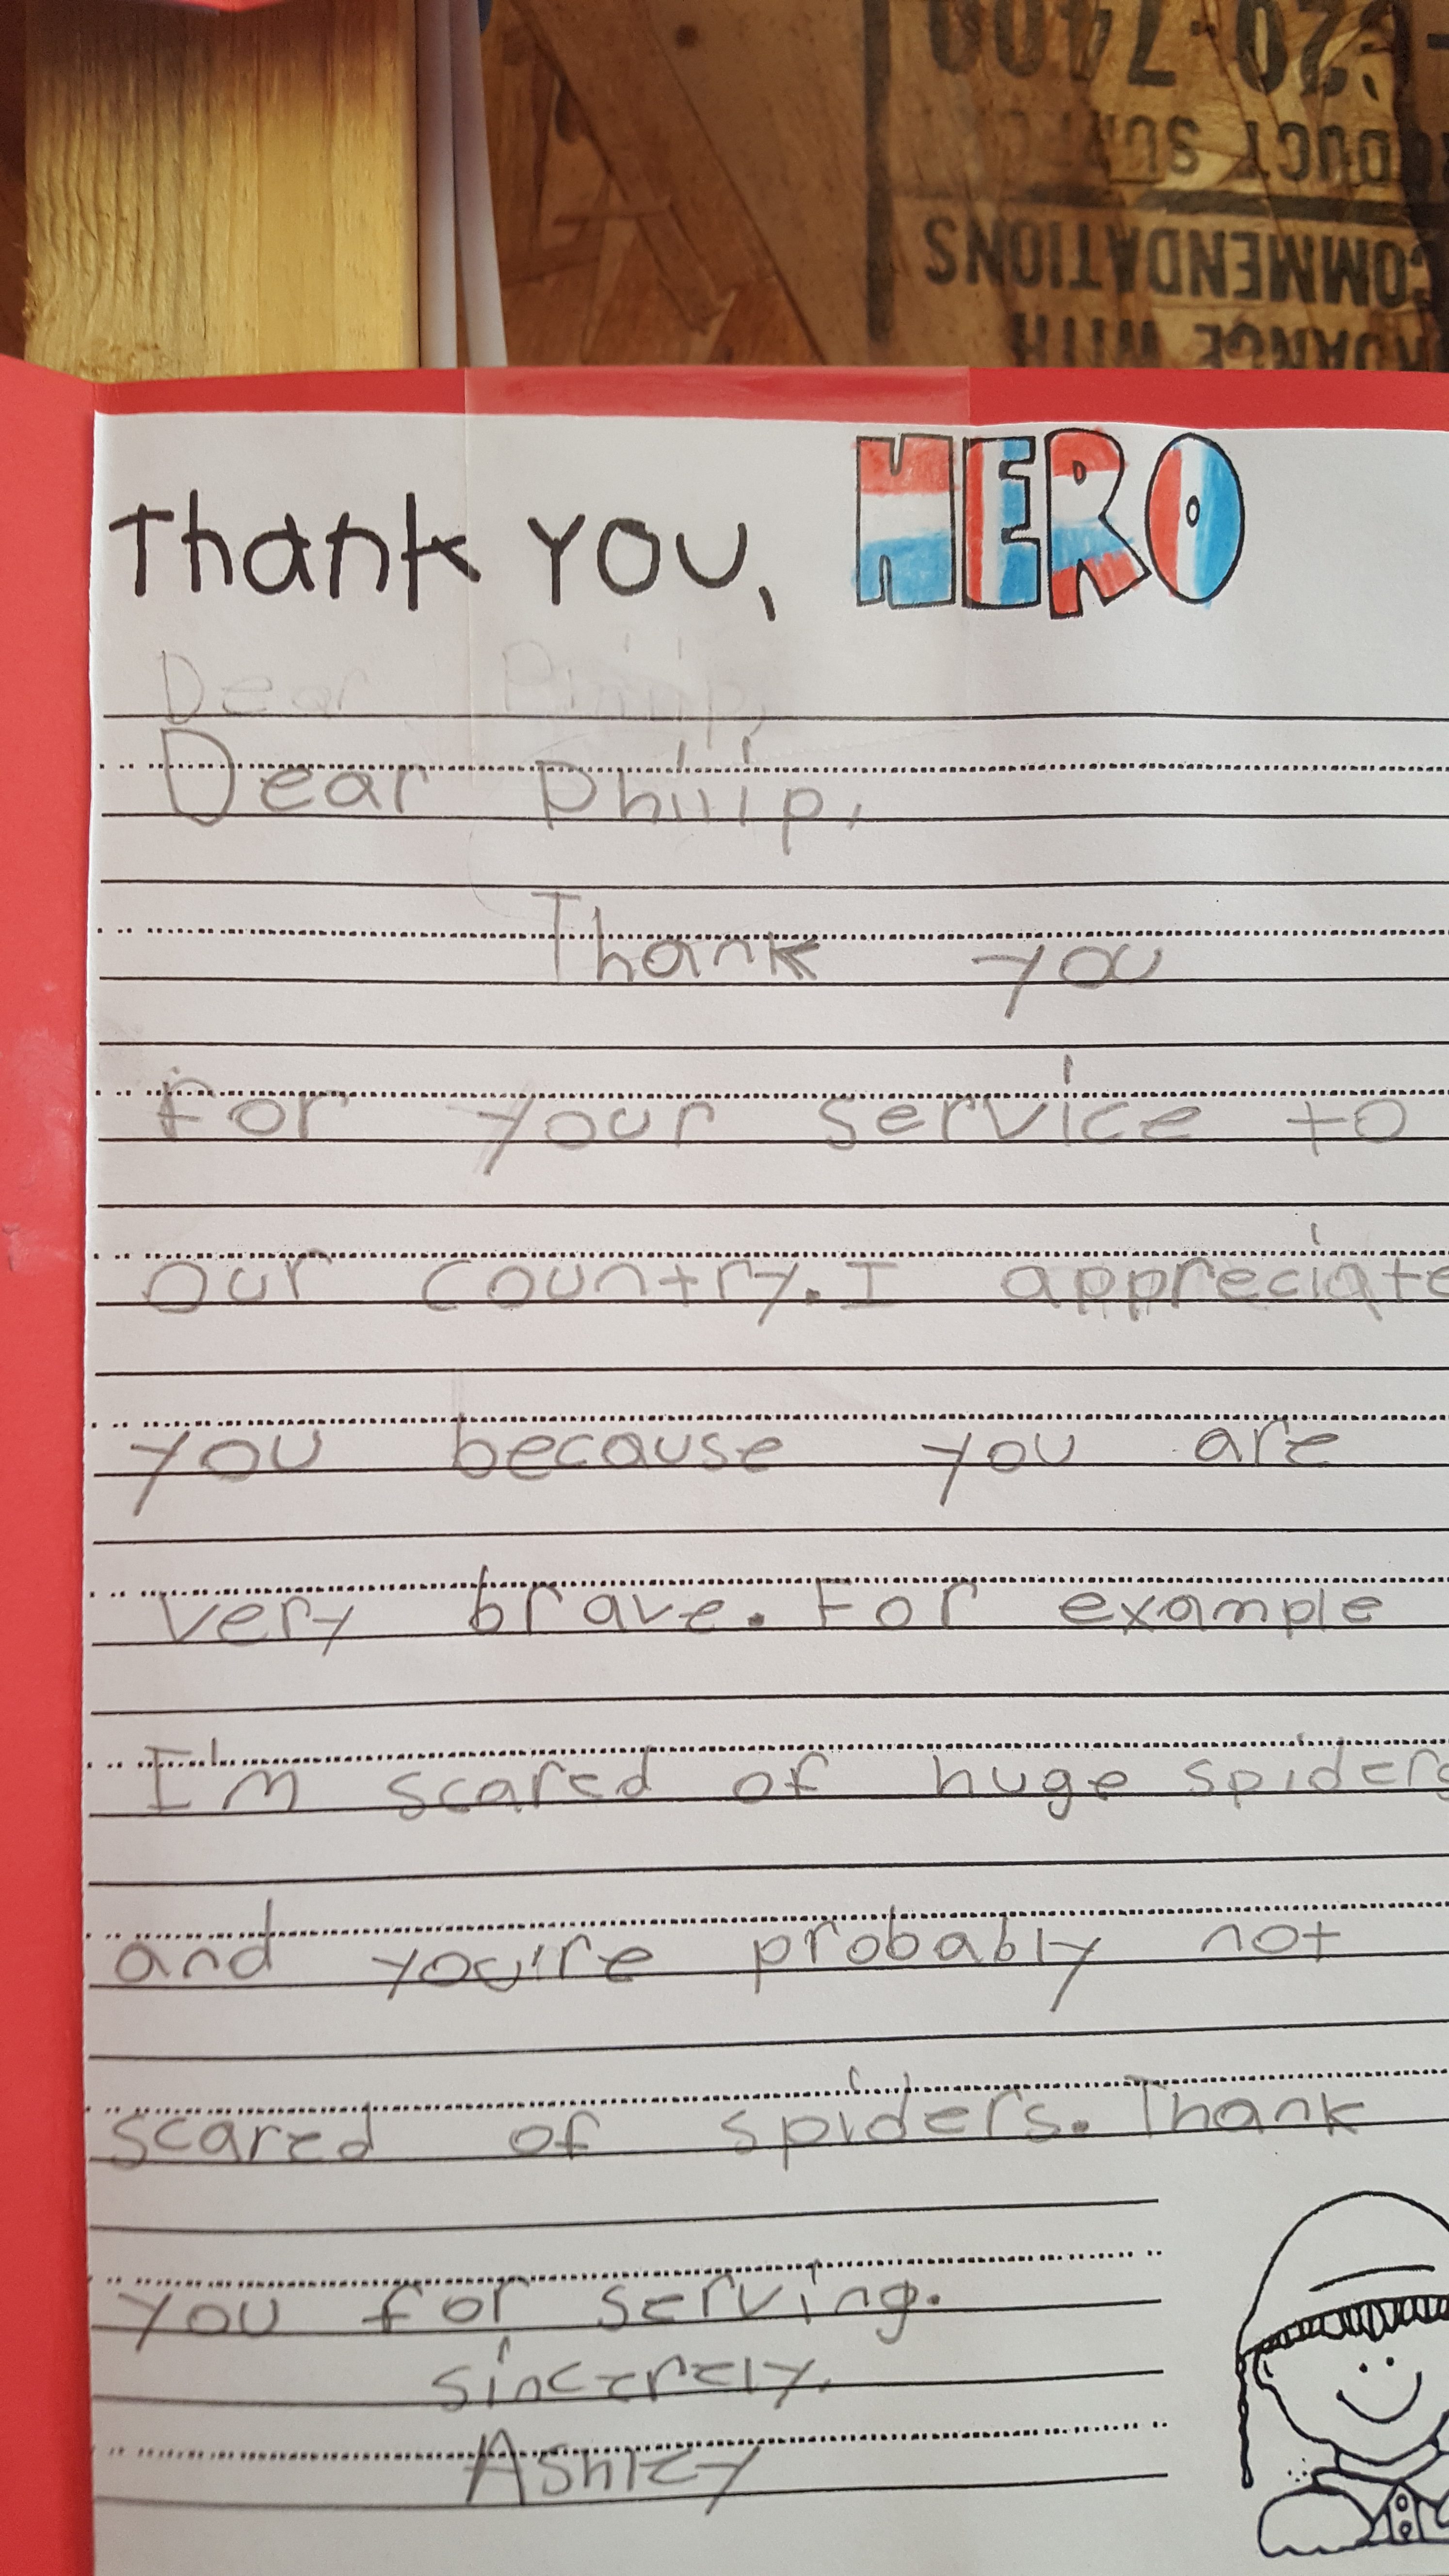 -620-7400
PRODUCT
COMMENDATIONS
RDANCE WITH
Thank YOU, HERO
Dear Philip,
Dear Philip,
Thank you
for your service to
our country. I appreciate
you because you are
very brave. For example
I'm scared of huge spiders
and you're probably not
scared of spiders. Thank
you for serving.
sincerely,
Ashley